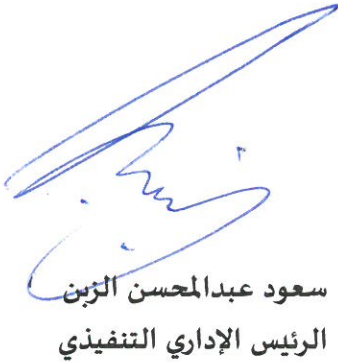 سعود عبدالمحسن الزبن
الرئيس الإداري التنفيذي